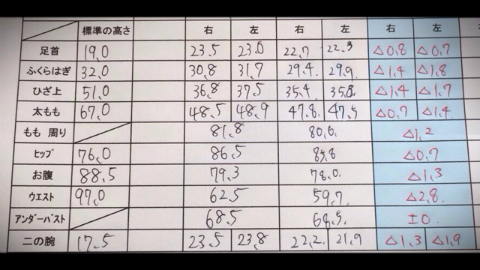 標準の高さ 右 左 右 左 右 左
足首 19.0 23.5 23.0 22.7 22.3 △0.8 △0.7
ふくらはぎ 32.0 30.8 31.7 29.4 29.9 △1.4 △1.8
ひざ上 51.0 36.8 37.5 35.4 35.8 △1.4 △1.7
太もも 67.0 48.5 48.9 47.8 47.5 △0.7 △1.4
もも 周り 81.8 80.6 △1.2
ヒップ 76.0 86.5 85.8 △0.7
お腹 88.5 79.3 78.0 △1.3
ウエスト 97.0 62.5 59.7 △2.8
アンダーバスト 68.5 68.5 ±0
二の腕 17.5 23.5 23.8 22.2 21.9 △1.3 △1.9